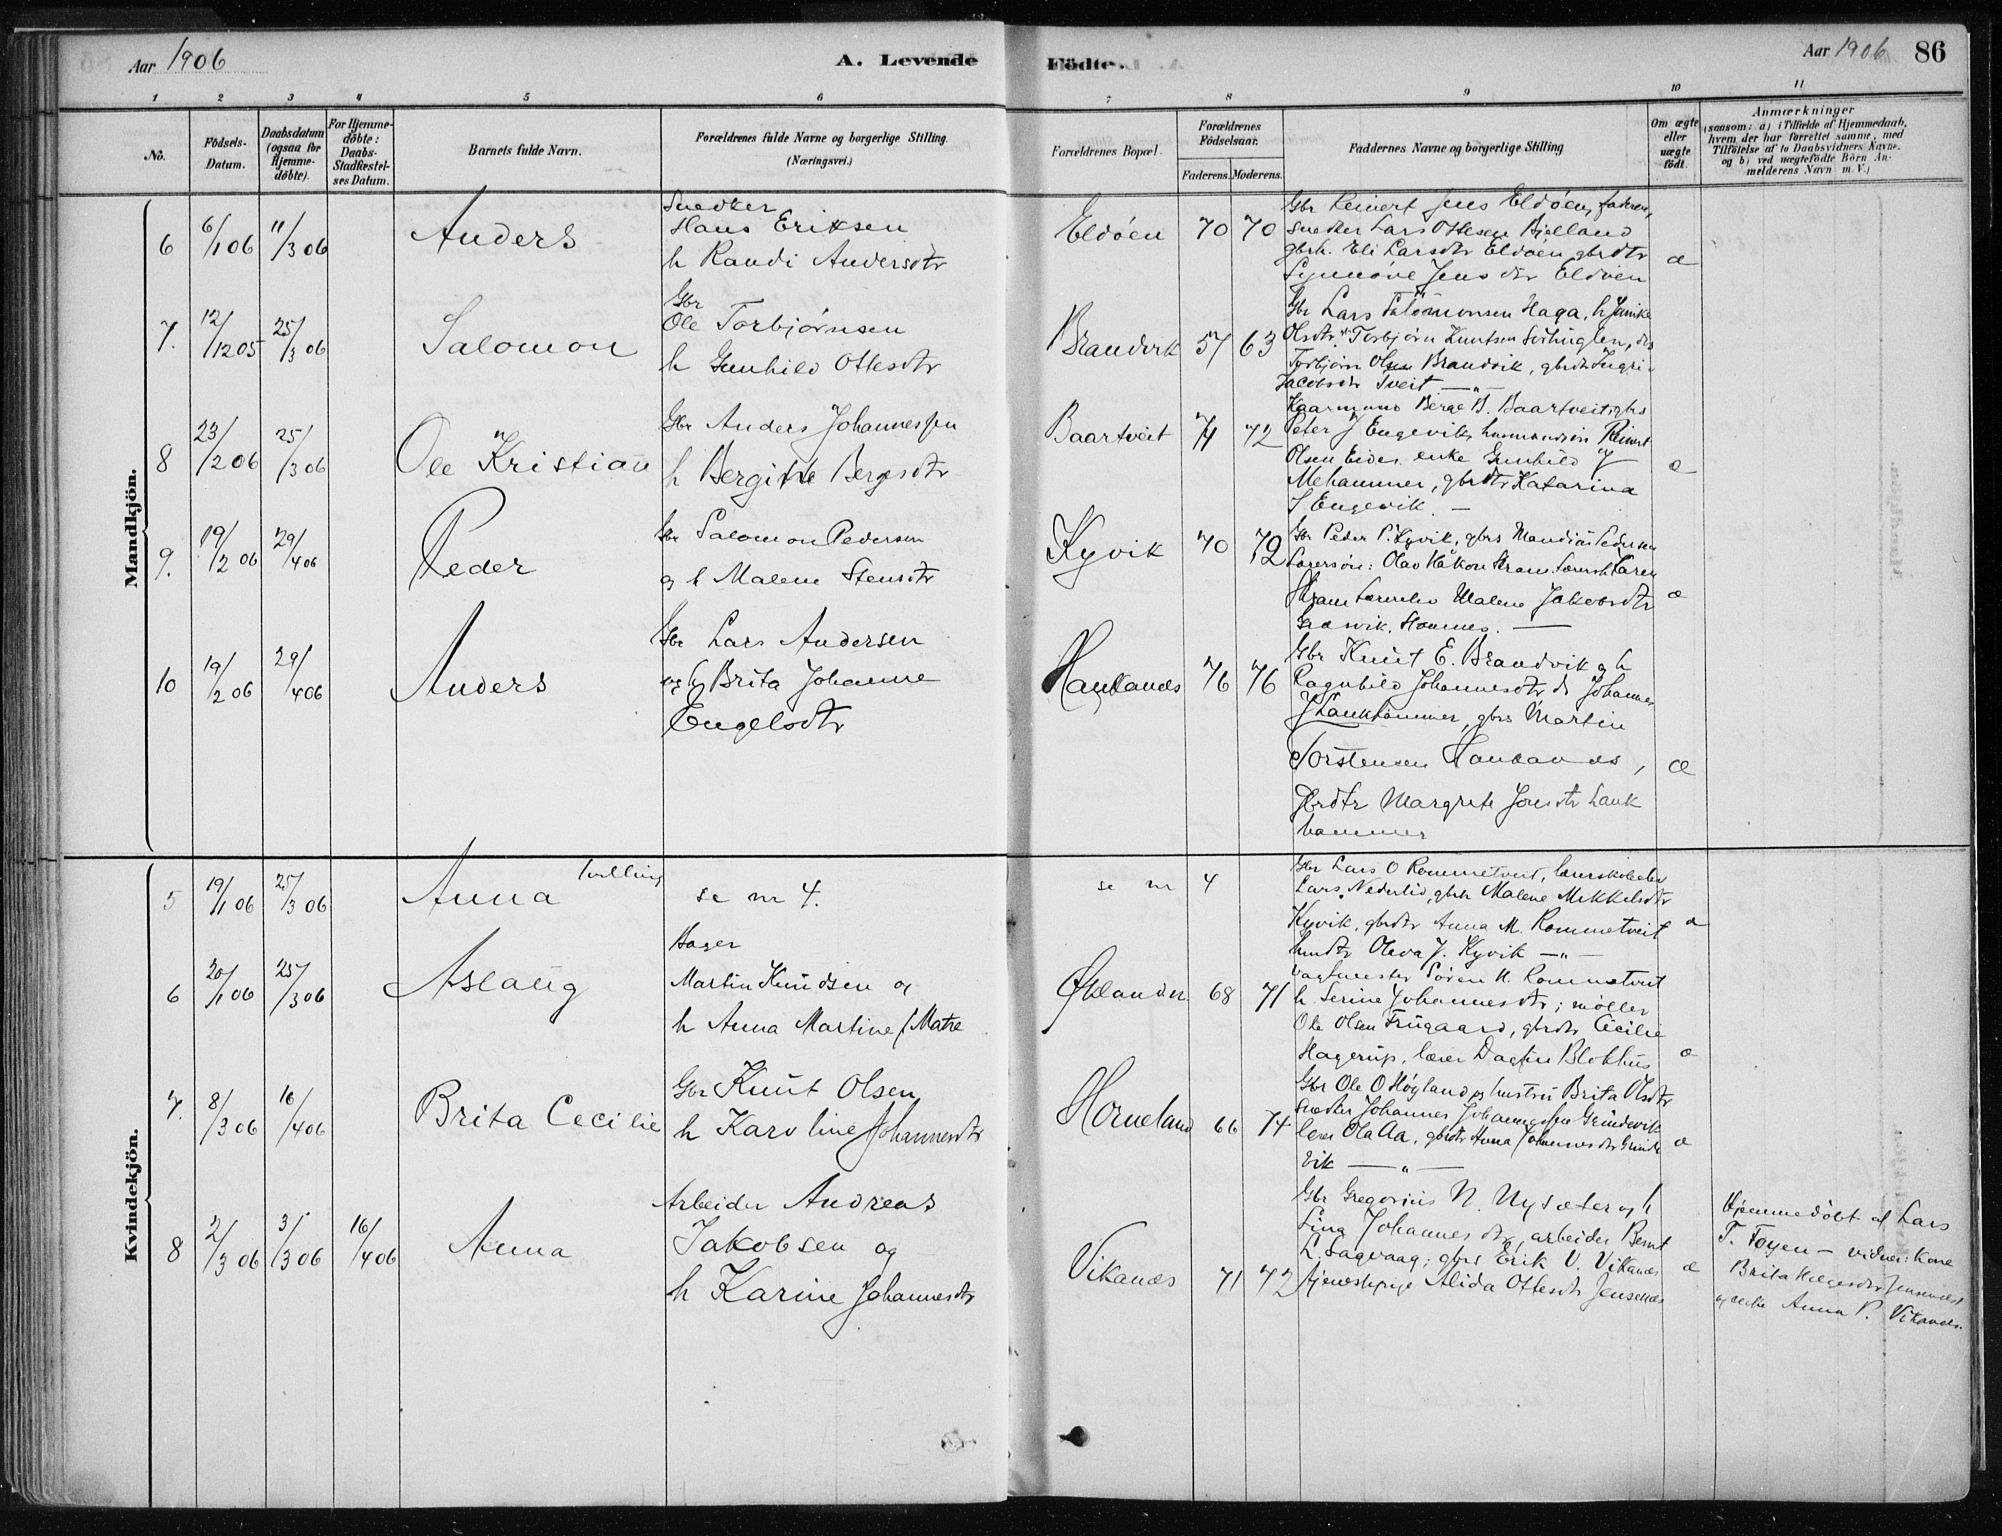 Aar 1906
A. Levende
Födte.
Aar 1906
86
1 2 3 4 5 6 7 8 9 10 11
No.
Födsels-Datum.
Daabsdatum (ogsaa for Hjemme-döbte).
For Hjemme-döbte: Daabs-Stadfæstel-ses Datum.
Barnets fulde Navn.
Forældrenes fulde Navne og borgerlige Stilling.
(Næringsvei.)
Forældrenes Bopæl.
Forældrenes Födselsaar.
Faderens. Moderens.
Faddernes Navne og borgerlige Stilling
Om ægte eller uægte födt.
Anmærkninger
(saasom: a) i Tilfælde af Hjemmedaab, hvem der har forrettet samme, med Tilföielse af to Daabsvidners Navne. og b) ved uægtefödte Börn An-melderens Navn m. V.)
Mandkjön.
6 6/1 06 11/3 06 Anders
Snedker
Hans Eriksen
h Randi Andersdtr
Eldøen 70 70
Gbr Reinert Jens Eldøen, faderen,
snedker Lars Ottesen Bjelland
gbrh. Eli Larsdtr Eldøen gbrdtr
Synnøve Jensdtr Eldøen
æ
7. 12/12 05 25/3 06 Salomon
Gbr
Ole Torbjørnsen
h Gunhild Ottesdtr
Brandvik 57 63
Gbr Lars Salomonsen Haga, h Jannike
Olsdtr. Torbjørn Knutsen Sørhuglen,
Torbjørn Olsen Brandvik, gbrdtr Ingri
Jacobsdtr Tveit —„—
8 23/2 06 25/3 06 Ole Kristian
Gbr Anders Johannessen
h Bergitte Bergesdtr
Baartveit 71 72
Kaarmann Berge B. Baartveit, gbrs
Peter J Engevik, husmandssøn Reinert
Olsen Eide, enke Gunhild J
Mehammer, gbrdtr Katarina
J Engevik. —
æ
9. 19/2 06 29/4 06 Peder
Gbr Salomon Pedersen
og h Malene Stensdtr
Kyvik 70 72
Gbr Peder P. Kyvik, gbrs Mandius Pedersen
Lærersøn: Olav Håkon Hram Karen
Hram Malene Jakobsdtr
Hovnes. —
æ
10 19/2 06 29/4 06 Anders
Gbr Lars Andersen
og h Brita Johanne
Engelsdtr
Haukanes 76 76
Gbr Knut E. Brandvik og h
Ragnhild Johannesdtr ds Johannes
J Laukhammer, gbrs Martin
Torstensen Haukanes,
Gbrdtr Margrete Jonsdtr Lauk
hammer
æ
Kvindekjön.
5 19/1 06 25/3 06 Anna tvilling
se nr 4.
se nr 4
Gbr Lars O Rommetveit, lærerskoleelev
Lars Nederlid, gbrh Malene Mikkelsdtr
Kyvik, gbrdtr Anna M. Rommetveit
husdtr Oleva J. Kyvik —„—
æ
6 20/1 06 25/3 06 Aslaug
Bager
Martin Knudsen og
h Anna Martine f Matre
Øklandsn 68 71
Vagtmester Søren K. Rommetveit
h. Serine Johannesdtr; møller
Ole Olsen Frugaard, gbrdtr Cecilie
Hagerup, lærer Dagfin Blokhus
æ
7. 8/3 06 16/4 06 Brita Cecilie
Gbr Knut Olsen
h Karoline Johannesdtr
Horneland 66 74
Gbr Ole O Høyland og hustru Brita Olsdtr
Snedker Johannes Johannessen Grindevik
lærer Ola Aa, gbrdtr Anna Johannesdtr Grinde
vik —„—
æ
8 2/3 06 3/3 06 16/4 06 Anna
Arbeider Andreas
Jakobsen og
h Karine Johannesdtr
Vikanes 71 72
Gbr Gregorius N. Nysæter og h
Lina Johannesdtr, arbeider Bernt
L. Sagvaag; gbrs Erik V. Vikanes
tjenestepige Alida Ottesdtr Jensenæs
æ
Hjemmedøbt af Lars
T. Føyen — vidner: kone
Brita Helgesdtr Jensenæs
og enke Anna P. Vikanæs.